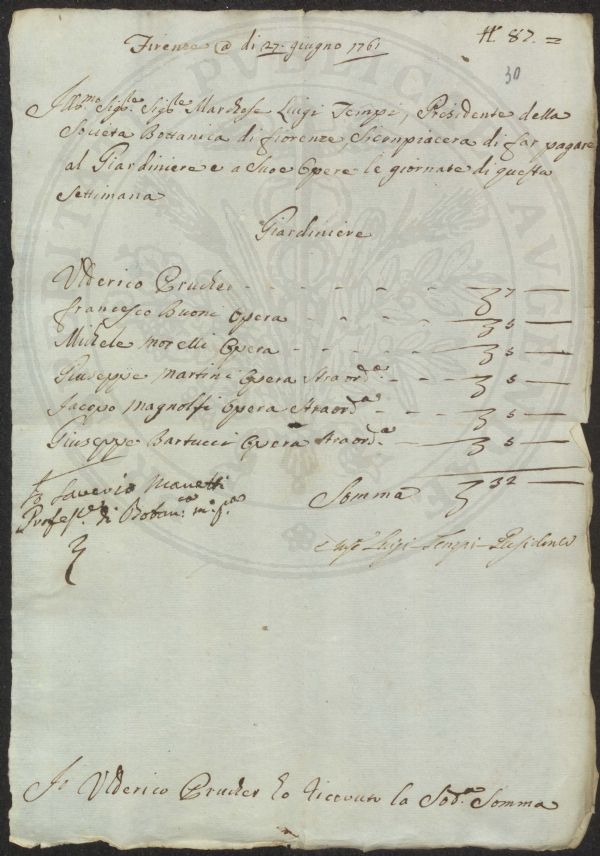 Firenze @ di 27. giugno 1761
N. 87. =
30
Ill.mo Sig.re Sig.re Marchese Luigi Tempi, Presidente della
Società Bottanica di fiorenze, Si compiacera di far pagare
al Giardiniere e a Sue Opere le giornate di questa
Settimana
Giardiniere
Ulderico Prucker - - - - 7 —
francesco Buoni Opera - - - 5 —
Michele Morelli Opera - - - 5 —
Giuseppe Martini Opera Straord.a - - - 5 —
Jacopo Magnolfi Opera Straord.a - - 5 —
Giuseppe Bartucci Opera Straord.a - - 5 —
Saverio Manetti
Somma 32 —
Profes.re di Botan.ca m.o p.a
Luigi Tempi Presidente
Io Ulderico Prucker ho ricevuto la Sod.a Somma